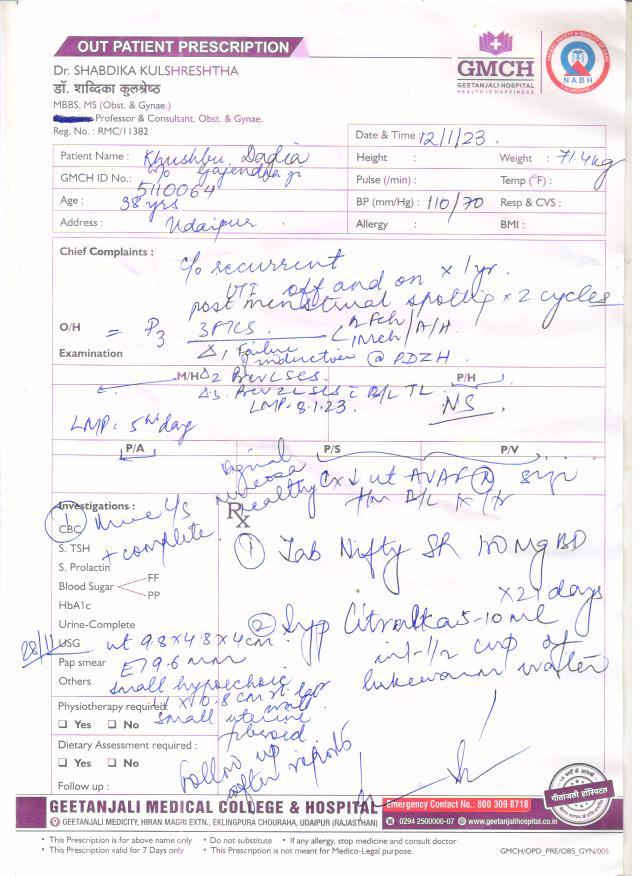 OUT PATIENT PRESCRIPTION
Dr. SHABDIKA KULSHRESHTHA
डॉ. शब्दिका कुलश्रेष्ठ
MBBS, MS (Obst. & Gynae.)
Professor & Consultant, Obst. & Gynae.
Reg. No. : RMC/11382
GMCH
GEETANJALI HOSPITAL
HEALTH IS HAPPINESS
NABH
Date & Time : 12/1/23.
Patient Name : Khushbu Dadia
w/o Gajendra ji
GMCH ID No.: 5110064
Age : 38 yrs
Address : Udaipur
Height : Weight : 71.4kg
Pulse (/min) : Temp (°F) :
BP (mm/Hg) : 110/70 Resp & CVS :
Allergy : BMI :
Chief Complaints :
c/o recurrent
UTI off and on x 1yr.
post menstrual spotting x 2 cycles
O/H = P3 3 LSCS
Examination 1 Failure
induction @ PDZH.
M/H 2 Prev LSCS.
3. Prev 2 LSCS c B/L TL
LMP. 8.1.23.
P/H
NS
LMP. 5th day
P/A P/S P/V
vaginal
mucosa
healthy Cx ut AVAF
Investigations :
1 Urine C/S
CBC
+ complete
S. TSH
S. Prolactin
Blood Sugar FF
PP
HbA1c
Urine-Complete
28/11 USG ut 9.8 x 4.8 x 4cm
Pap smear ET 9.6 mm
Others small hypoechoic
Physiotherapy required 0.8 cm
wall
small uterine
fibroid
Yes No
Dietary Assessment required :
Yes No
Follow up :
Follow up
after reports
Rx
1 Tab Nifty SR 100 Mg BD
x 21 days
2 Syp Citralka 5-10 ml
in 1-1/2 cup of
lukewarm water
GEETANJALI MEDICAL COLLEGE & HOSPITAL
Emergency Contact No.: 800 309 8718
GEETANJALI MEDICITY, HIRAN MAGRI EXTN., EKLINGPURA CHOURAHA, UDAIPUR (RAJASTHAN)
0294 2500000-07 www.geetanjalihospital.co.in
गीतांजली हॉस्पिटल
• This Prescription is for above name only • Do not substitute • If any allergy, stop medicine and consult doctor
• This Prescription valid for 7 Days only • This Prescription is not meant for Medico-Legal purpose.
GMCH/OPD_PRE/OBS_GYN/005